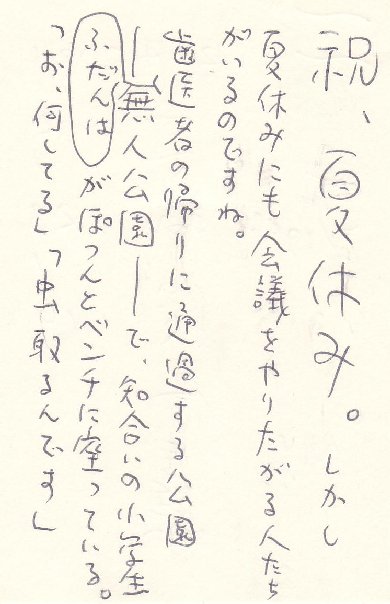 祝、夏休み。しかし
夏休みにも会議をやりたがる人たち
がいるのですね。
歯医者の帰りに通過する公園
—ふだんは無人公園—で、知合いの小学生
がぽつんとベンチに座っている。
「お、何してる」「虫取るんです」